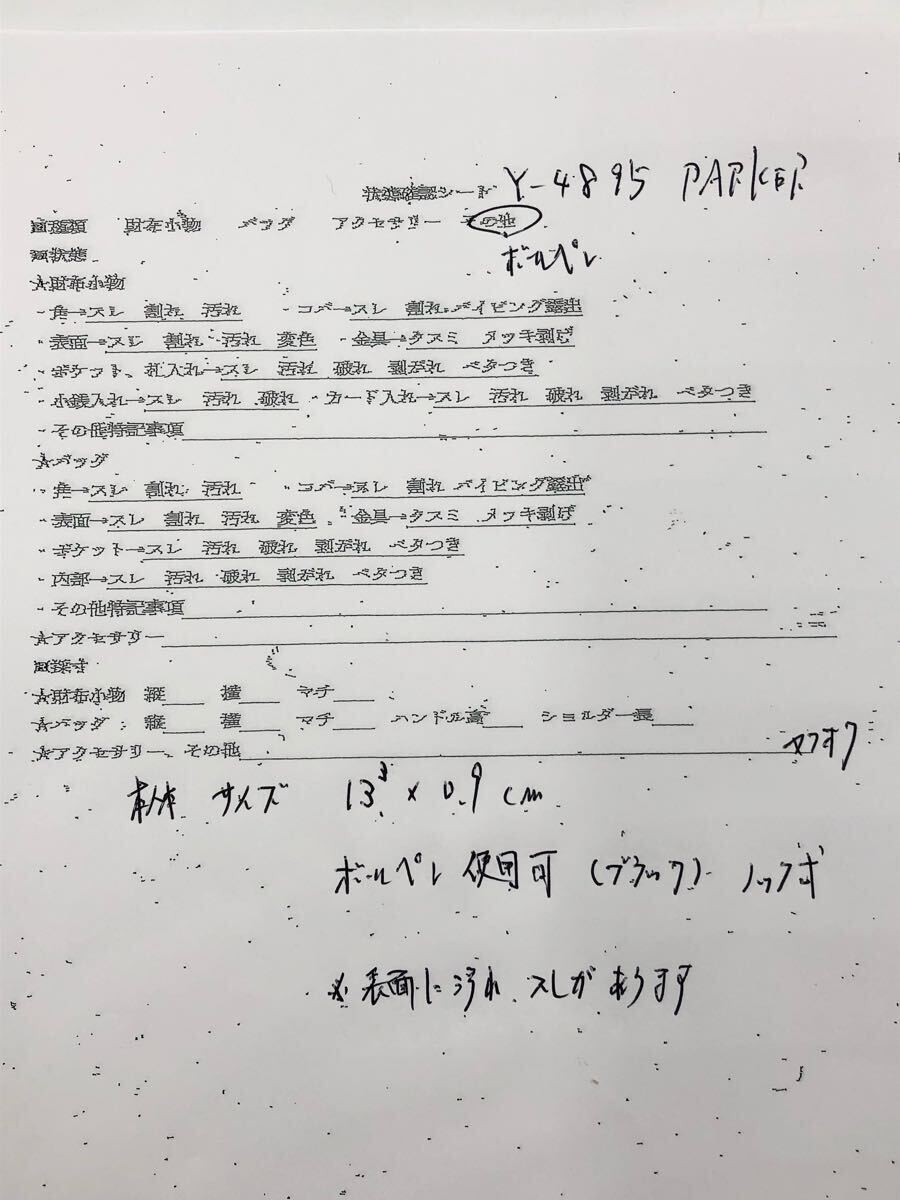 状態確認シート Y-4895 PARKER
■種類 財布小物 バッグ アクセサリー その他
ボールペン
■状態
☆財布小物
・角→スレ 割れ 汚れ ・コバ→スレ 割れ パイピング露出
・表面→スレ 割れ 汚れ 変色 ・金具→クスミ メッキ剥げ
・ポケット、札入れ→スレ 汚れ 破れ 剥がれ ベタつき
・小銭入れ→スレ 汚れ 破れ ・カード入れ→スレ 汚れ 破れ 剥がれ ベタつき
・その他特記事項
☆バッグ
・角→スレ 割れ 汚れ ・コバ→スレ 割れ パイピング露出
・表面→スレ 割れ 汚れ 変色 ・金具→クスミ メッキ剥げ
・ポケット→スレ 汚れ 破れ 剥がれ ベタつき
・内部→スレ 汚れ 破れ 剥がれ ベタつき
・その他特記事項
☆アクセサリー
■採寸
☆財布小物 縦 横 マチ
☆バッグ 縦 横 マチ ハンドル高 ショルダー長
☆アクセサリー、その他
ヤフオク
本体サイズ 13 × 0.9 cm
ボールペン使用可 (ブラック) ノック式
※表面に汚れ、スレがあります